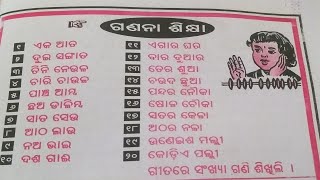 ଗଣନା ଶିକ୍ଷା
୧ ଏକ ଆତ
୨ ଦୁଇ ସଙ୍ଗାତ
୩ ତିନି ନେଉଳ
୪ ଚାରି ଚାଉଳ
୫ ପାଞ୍ଚ ଆମ୍ବ
୬ ଛଅ ଡାଳିମ୍ବ
୭ ସାତ ସେଉ
୮ ଆଠ ଲାଉ
୯ ନଅ ଭାଇ
୧୦ ଦଶ ଗାଈ
୧୧ ଏଗାର ଘର
୧୨ ବାର ଦୁଆର
୧୩ ତେର ଶୁଆ
୧୪ ଚଉଦ ଛୁଆ
୧୫ ପନ୍ଦର ନୌକା
୧୬ ଷୋଳ ଚୌକା
୧୭ ସତର କେଳା
୧୮ ଅଠର ନଳା
୧୯ ଊଣେଇଶ ମଲ୍ଲୀ
୨୦ କୋଡ଼ିଏ ପଲ୍ଲୀ
ଗୀତରେ ସଂଖ୍ୟା ଗଣି ଶିଖିଲି ।